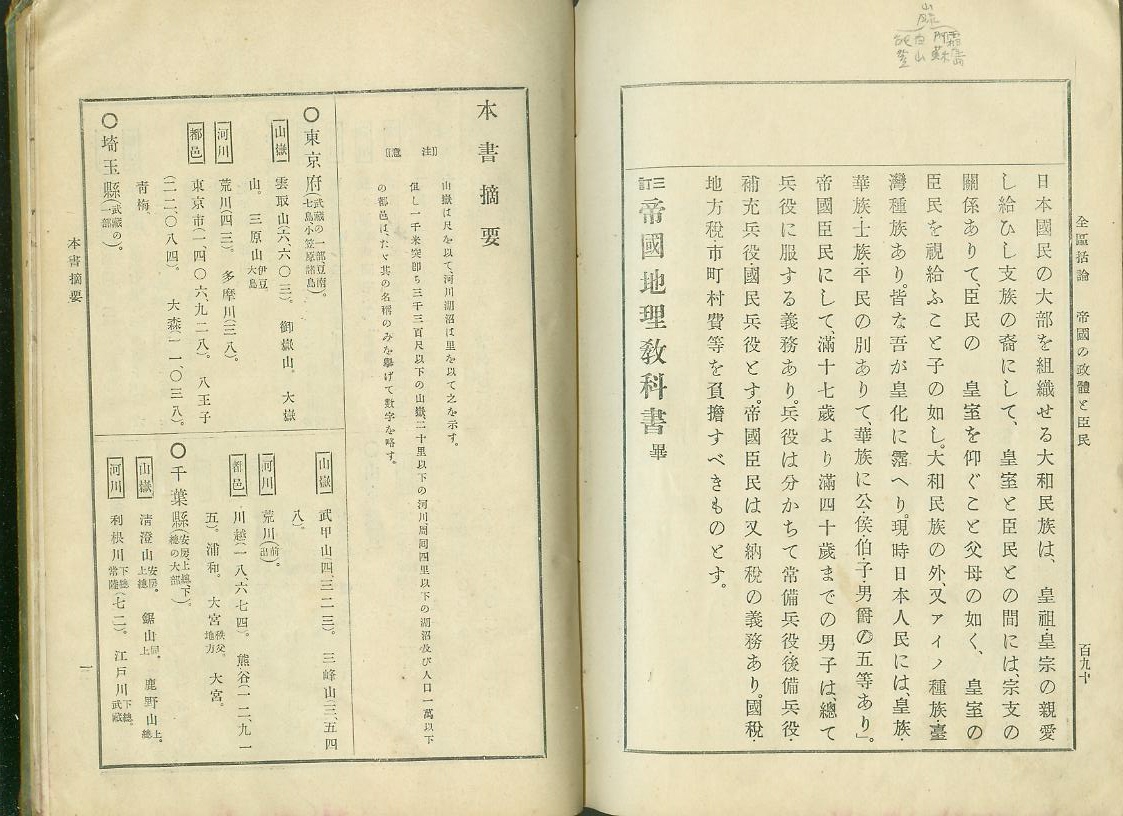 全區括論　帝國の政體と臣民
百九十
日本國民の大部を組織せる大和民族は、　皇祖・皇宗の親愛
し給ひし支族の裔にして、　皇室と臣民との間には、宗支の
關係ありて、臣民の　皇室を仰ぐこと父母の如く、　皇室の
臣民を視給ふこと子の如し。大和民族の外、又アイノ種族・臺
灣種族あり。皆な吾が皇化に霑へり。現時日本人民には、皇族・
華族・士族・平民の別ありて、華族に公・侯・伯・子・男爵の五等あり」。
帝國臣民にして、滿十七歲より滿四十歲までの男子は、總て
兵役に服する義務あり。兵役は分かちて常備兵役・後備兵役・
補充兵役・國民兵役とす。帝國臣民は又納稅の義務あり。國稅・
地方稅市町村費等を負擔すべきものとす。
三訂 帝國地理教科書 畢
山
白山
阿蘇
霧島
本書摘要
〖注意〗
山嶽は尺を以て、河川湖沼は里を以て之を示す。
但し一千米突卽ち三千三百尺以下の山嶽、二十里以下の河川周囘四里以下の湖沼及び人口一萬以下
の都邑は、たゞ其の名稱のみを擧げて數字を略す。
〇東京府(武藏の一部、豆南七島、小笠原諸島)。
山嶽　雲取山(六、六〇三)。　御嶽山。　大嶽
山。　三原山伊豆大島
河川　荒川(四三)。　多摩川(三八)。
都邑　東京市(一、四〇六、九二八)。　八王子
(二二、〇八四)。　大森(一一、〇三八)。
青梅、
〇埼玉縣(武藏の一部)。
山嶽　武甲山(四、三二三)。　三峰山(三、五四
八)。
河川　荒川(前出)。
都邑　川越(一八、六七四)。　熊谷(一二、九一
五)。　浦和。　大宮秩父地方。　大宮。
〇千葉縣(安房、上總、下總の大部)。
山嶽　清澄山安房、上總。　鋸山同上。　鹿野山上總。
河川　利根川下總、常陸(七二)。　江戸川下總、武藏。
本書摘要
一